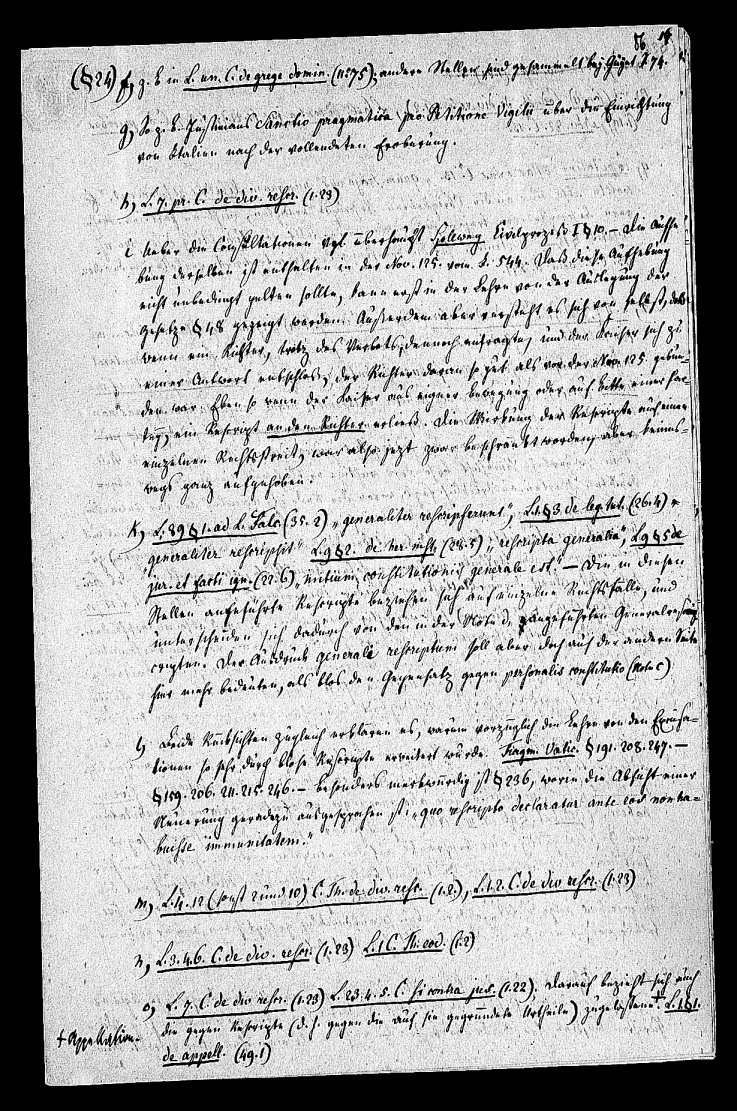 86
(§24) f, z. B. in L. un. C. de grege domin. (11. 75); andere Stellen sind gesammelt bey Guyet p 74.
g, So z. B. Justinians Sanctio pragmatica pro Petitione Vigilii über die Einrichtung
von Italien nach der vollendeten Eroberung.
h, L. 7. pr. C. de div. rescr. (1. 23)
i Ueber die Consultationen vgl. überhaupt Hollweg Civilprozeß I § 10. – Die Aufhe-
bung derselben ist enthalten in der Nov. 125. vom J. 544. Daß diese Aufhebung
nicht unbedingt gelten sollte, kann erst in der Lehre von der Auslegung der
Gesetze § 48 gezeigt werden. Außerdem aber versteht es sich von selbst, daß
wenn ein Richter, trotz des Verbots, dennoch anfragte, und der Kaiser sich zu
einer Antwort entschloß, der Richter daran so gut als vor der Nov. 125. gebun-
den war. Eben so wenn der Kaiser aus eigner Bewegung oder auf Bitte einer Par-
tey, ein Rescript an den Richter erließ. Die Wirkung der Rescripte auf einen
einzelnen Rechtsstreit, war also jezt zwar beschränkt worden, aber keines-
wegs ganz aufgehoben.
k, L. 89 § 1. ad L. Falc. (35. 2) „generaliter rescripserunt", L. 1. § 3 de leg. tut. (26. 4)
„generaliter rescripsit" L. 9 § 2. de her. inst. (28. 5) „rescripta generalia", L. 9 § 5 de
jur. et facti ign. (22. 6) „initium constitutionis generale est" – Die in diesen
Stellen angeführten Rescripte beziehen sich auf einzelne Rechtsfälle, und
unterscheiden sich dadurch von den in der Note d. angeführten Generalres-
cripten. Der Ausdruck generale rescriptum soll aber doch auf der andern Seite
hier mehr bedeuten, als blos den Gegensatz gegen personalis constitutio (Note c)
l, Beide Rücksichten zugleich erklären es, warum vorzüglich die Lehre von den Excusa-
tionen so sehr durch bloße Rescripte erweitert wurde. Fragm. Vatic. § 191. 208. 247. –
§ 159. 206. 211. 215. 246. – Besonders merkwürdig ist § 236, worin die Absicht einer
Neuerung geradezu ausgesprochen ist: „quo rescripto declaratur ante eos non ha-
buisse immunitatem."
m, L. 4. 12 (sonst 2 und 10) C. Th. de div. resc. (1. 2.), L. 12. C. de div. rescr. (1. 23)
n, L. 3. 4. 6. C. de div. rescr. (1. 23) L. 1 C. Th. eod. (1. 2)
o, L. 7. C. de div. rescr. (1. 23) L. 2. 3. 4. 5. C. si contra jus. (1. 22). Darauf bezieht sich auch
die gegen Rescripte (d. h. gegen die auf sie gegründete Urtheile) zugelassene + L. 1. § 1.
+ Appellation.
de appell. (49. 1)